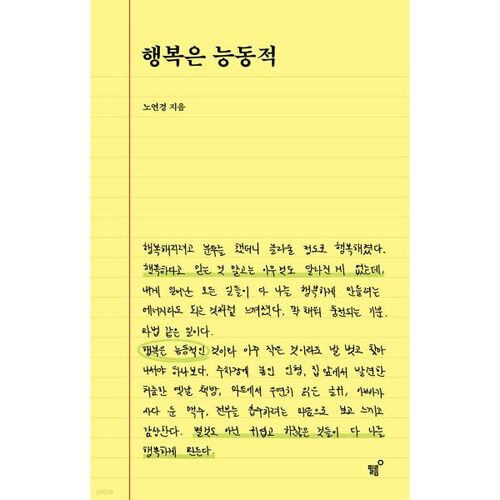 행복은 능동적
노연경 지음
행복해지려고 분투를 했더니 놀라울 정도로 행복해졌다.
행복하다고 믿는 것 말고는 아무것도 달라진 게 없는데,
내게 일어난 모든 일들이 다 나를 행복하게 만들려는
에너지라도 되는 것처럼 느껴졌다. 꽉 채워 충전되는 기분.
마법 같은 일이다.
행복은 능동적인 것이라 아주 작은 것이라도 발 벗고 찾아
나서야 하나보다. 수차장에 놓인 인형, 집 앞에서 발견한
허름한 옛날 책방, 마트에서 우연히 읽은 글귀, 아빠가
사다 둔 맥주, 전부를 흡수하려는 마음으로 보고 느끼고
감상한다. 별것도 아닌 귀엽고 하찮은 것들이 다 나를
행복하게 만든다.
필름